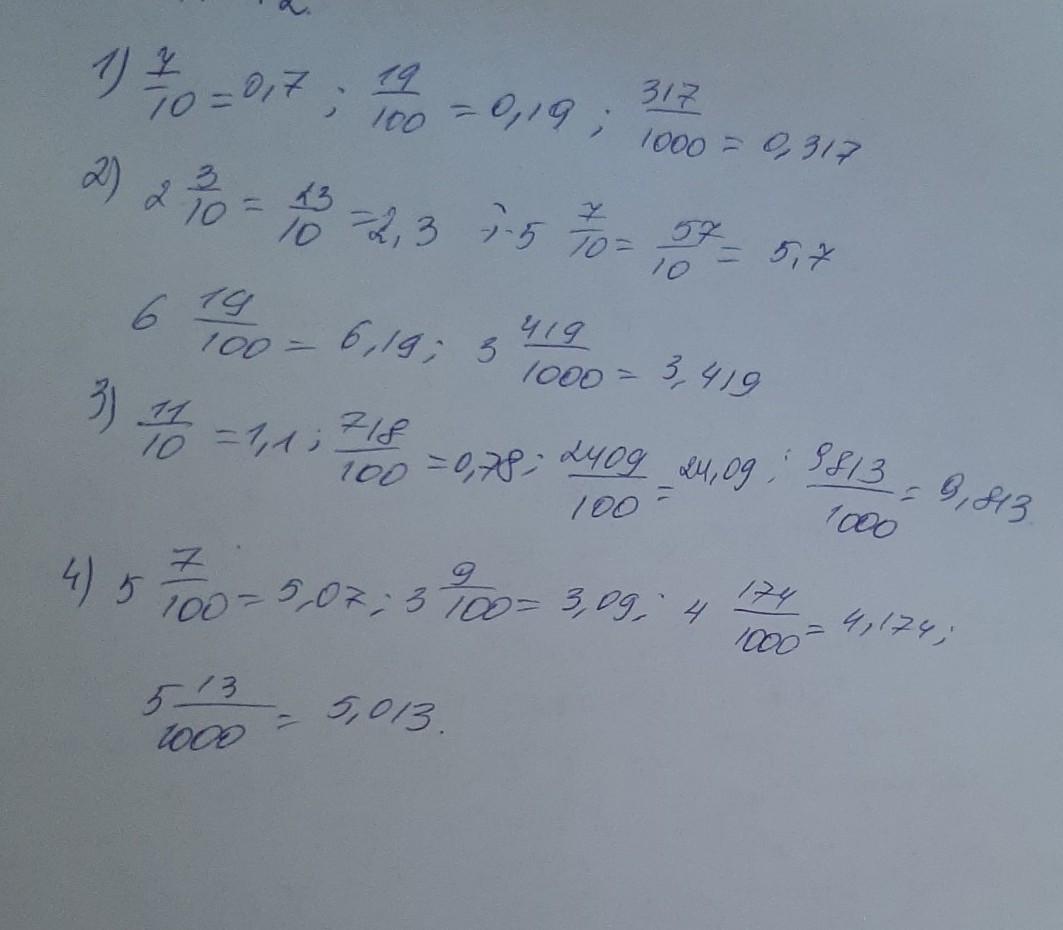 2.
1) 7/10 = 0,7 ; 19/100 = 0,19 ; 317/1000 = 0,317
2) 2 3/10 = 23/10 = 2,3 ; 5 7/10 = 57/10 = 5,7
6 19/100 = 6,19; 3 419/1000 = 3,419
3) 11/10 = 1,1 ; 718/100 = 0,78; 2409/100 = 24,09 ; 9813/1000 = 9,813
4) 5 7/100 = 5,07; 3 9/100 = 3,09; 4 174/1000 = 4,174;
5 13/1000 = 5,013.